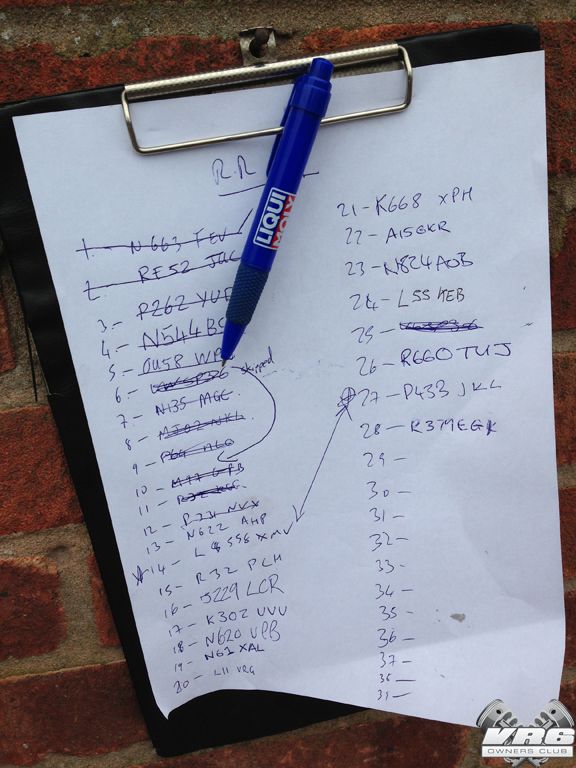 R.R
LIQUI
MOLY
1. - N663 FEV
2. - RF52 JUC
3. - P262 YUF
4. - N544 BS
5. - OU58 WP
6 - skipped
7 - N135 MGE
8 -
9 - P64
10 -
11 -
12 - P731 NVX
13 - N622 AHP
14 - L 556 XMV
15 - R32 PCH
16 - J229 LCR
17 - K302 UVU
18 - N620 VPB
19 - N61 XAL
20 - L11 VRG
21 - K668 XPH
22 - A15GKR
23 - N824 AOB
24 - L55 KEB
25 -
26 - R660 TUJ
27 - P433 JKL
28 - K379EGK
29 -
30 -
31 -
32 -
33 -
34 -
35 -
36 -
37 -
38 -
39 -
VR6
OWNERS CLUB